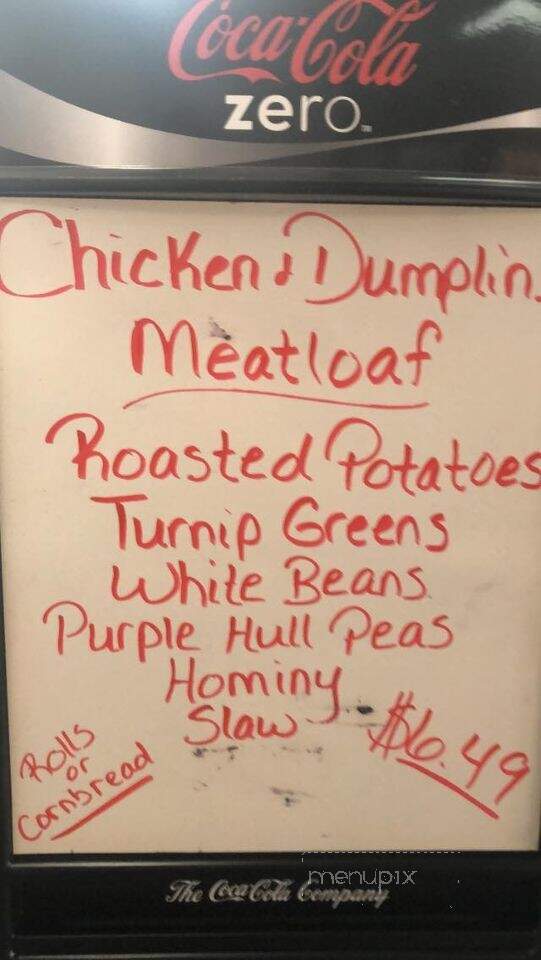 Coca-Cola
zero™
Chicken & Dumplin
Meatloaf
Roasted Potatoes
Turnip Greens
White Beans
Purple Hull Peas
Hominy
Slaw
$6.49
Rolls
or
Cornbread
menupix
The Coca-Cola Company